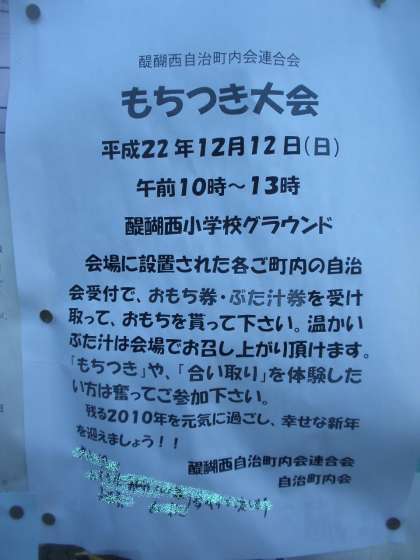 醍醐西自治町内会連合会
もちつき大会
平成22年12月12日(日)
午前10時～13時
醍醐西小学校グラウンド
会場に設置された各ご町内の自治
会受付で、おもち券・ぶた汁券を受け
取って、おもちを貰って下さい。温かい
ぶた汁は会場でお召し上がり頂けます。
「もちつき」や、「合い取り」を体験した
い方は奮ってご参加下さい。
残る2010年を元気に過ごし、幸せな新年
を迎えましょう！！
醍醐西自治町内会連合会
自治町内会